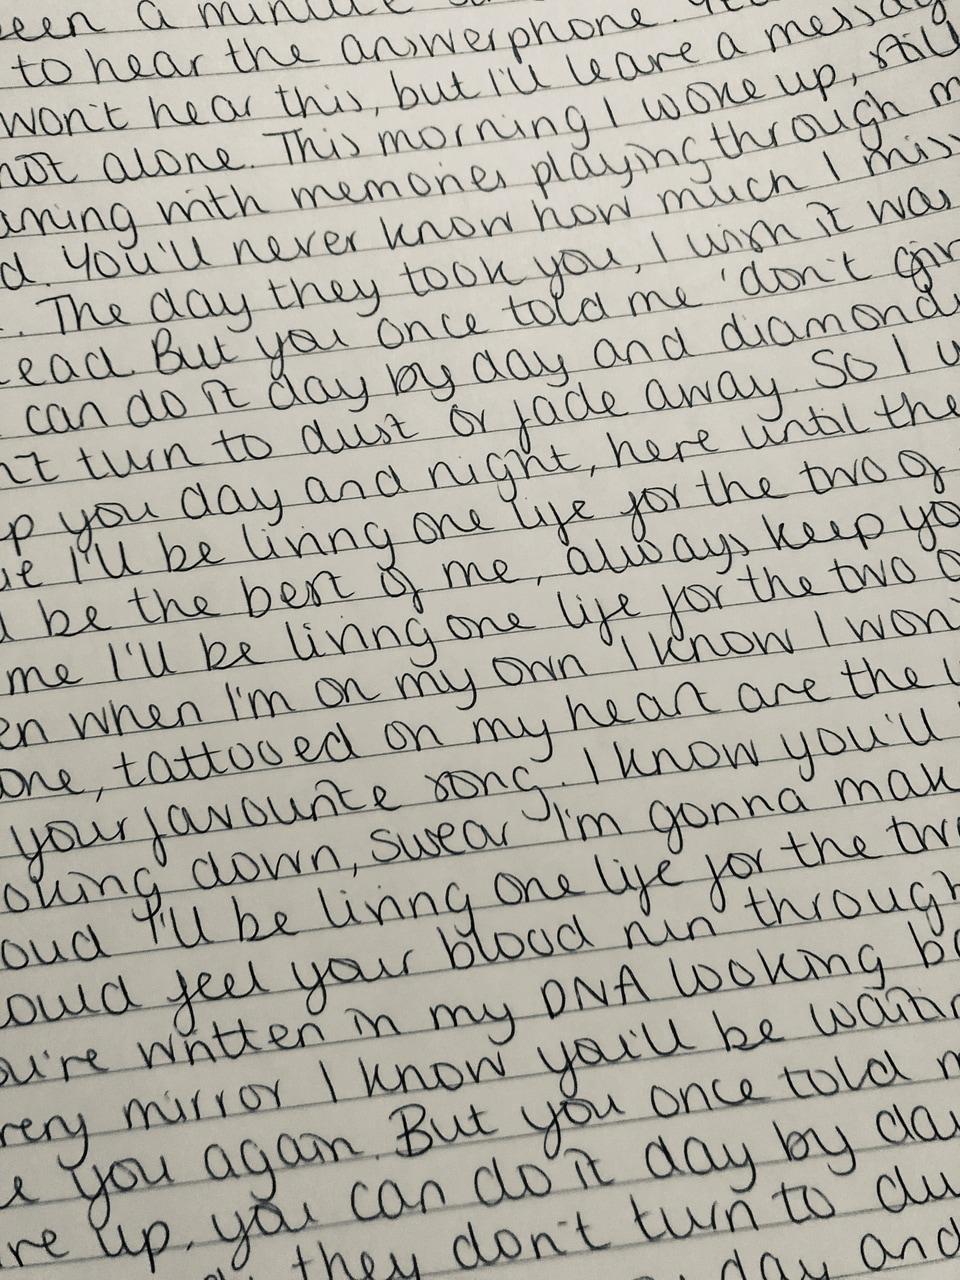 een a minute
to hear the answerphone.
won't hear this, but I'll leave a messag
not alone. This morning I woke up, still
aming with memories playing through m
d. You'll never know how much I miss
. The day they took you, I wish it was
ead. But you once told me 'don't giv
can do it day by day and diamond
n't turn to dust or fade away. So I w
p you day and night, here until the
ie I'll be living one life for the two of
l be the best of me, always keep yo
me I'll be living one life for the two o
en when I'm on my own I know I won'
one, tattooed on my heart are the w
your favourite song. I know you'll
oking down, swear I'm gonna mak
oud I'll be living one life for the two
ould feel your blood run through
ou're written in my DNA looking ba
very mirror I know you'll be waitin
e you again. But you once told m
ve up, you can do it day by day
they don't turn to du
day and